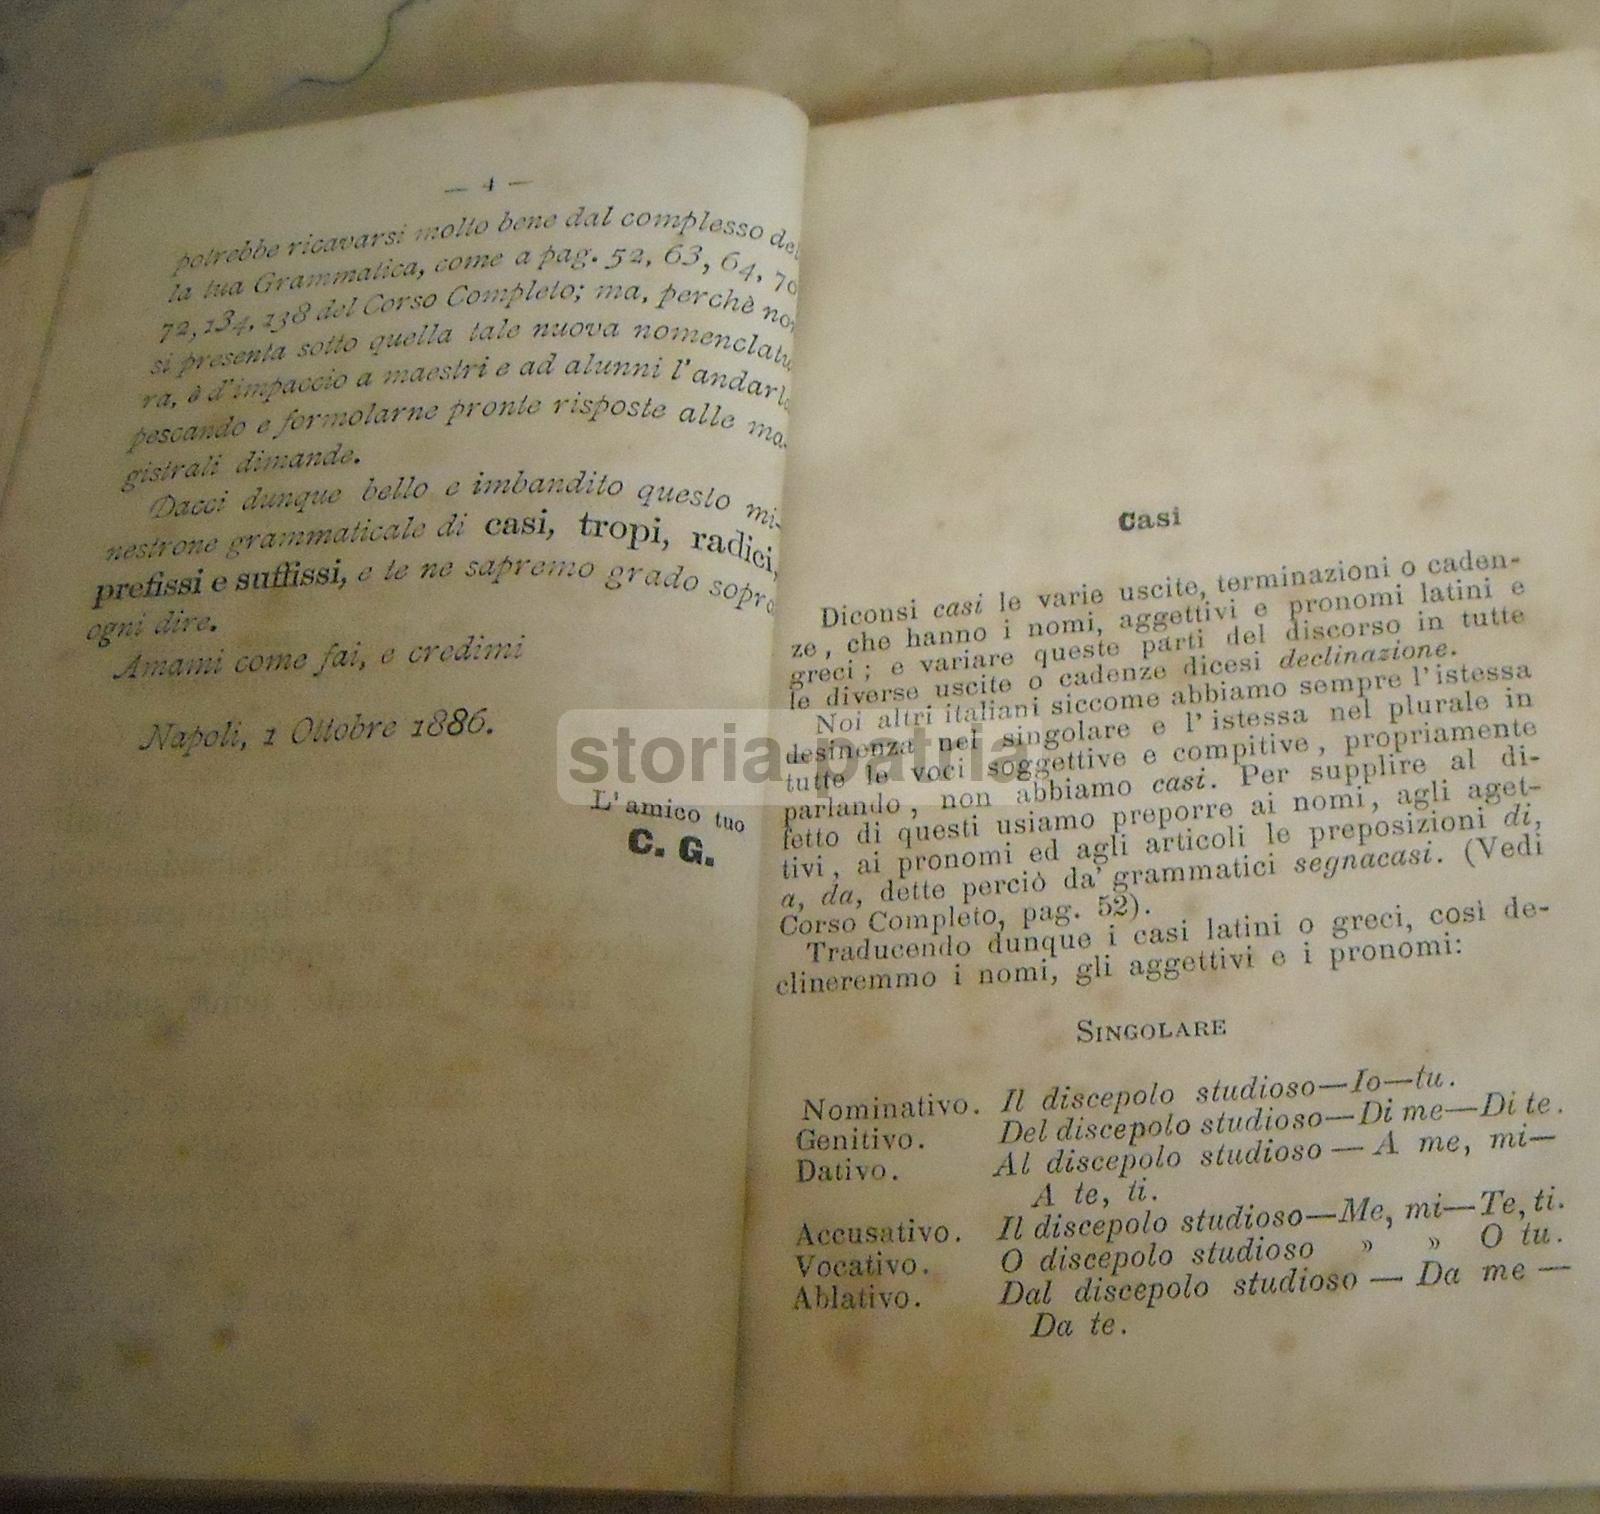 — 4 —
potrebbe ricavarsi molto bene dal complesso del
la tua Grammatica, come a pag. 52, 63, 64, 70
72, 134, 138 del Corso Completo; ma, perchè non
si presenta sotto quella tale nuova nomenclatu
ra, è d'impaccio a maestri e ad alunni l'andarlo
pescando e formolarne pronte risposte alle ma-
gistrali dimande.
Dacci dunque bello e imbandito questo mi-
nestrone grammaticale di casi, tropi, radici,
prefissi e suffissi, e te ne sapremo grado sopra
ogni dire.
Amami come fai, e credimi
Napoli, 1 Ottobre 1886.
L'amico tuo
C. G.
Casi
Diconsi casi le varie uscite, terminazioni o caden-
ze, che hanno i nomi, aggettivi e pronomi latini e
greci; e variare queste parti del discorso in tutte
le diverse uscite o cadenze dicesi declinazione.
Noi altri italiani siccome abbiamo sempre l'istessa
desinenza nel singolare e l'istessa nel plurale in
tutte le voci soggettive e compitive, propriamente
parlando, non abbiamo casi. Per supplire al di-
fetto di questi usiamo preporre ai nomi, agli aget-
tivi, ai pronomi ed agli articoli le preposizioni di,
a, da, dette perciò da' grammatici segnacasi. (Vedi
Corso Completo, pag. 52).
Traducendo dunque i casi latini o greci, così de-
clineremmo i nomi, gli aggettivi e i pronomi:
SINGOLARE
Nominativo. Il discepolo studioso—Io—tu.
Genitivo. Del discepolo studioso—Di me—Di te.
Dativo. Al discepolo studioso — A me, mi—
A te, ti.
Accusativo. Il discepolo studioso—Me, mi—Te, ti.
Vocativo. O discepolo studioso » » O tu.
Ablativo. Dal discepolo studioso — Da me —
Da te.
storia patria